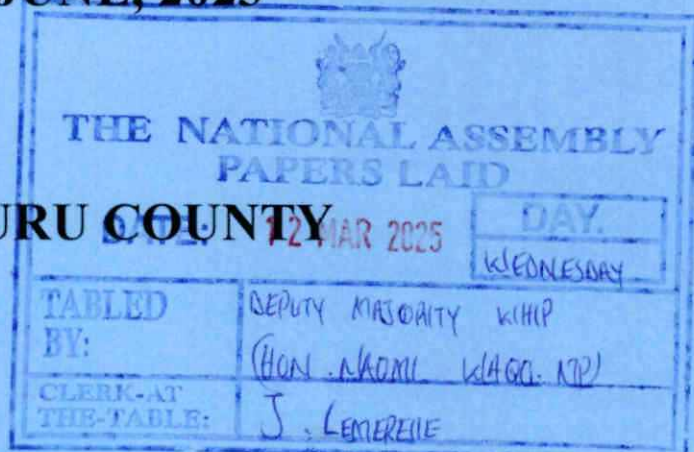 JUNE, 2023
THE NATIONAL ASSEMBLY
PAPERS LAID
URU COUNTY
DATE: 12 MAR 2025
DAY.
WEDNESDAY
TABLED BY:
DEPUTY MAJORITY WHIP
(HON. NAOMI WAQO. MP)
CLERK-AT THE-TABLE:
J. LEMERELLE